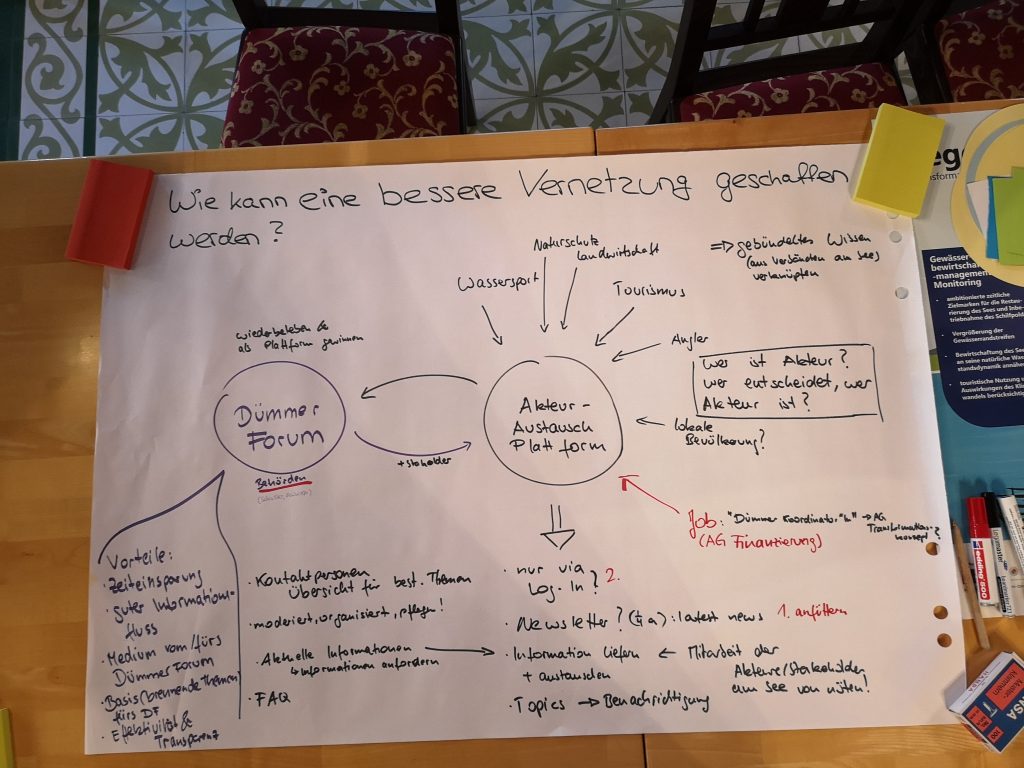 Wie kann eine bessere Vernetzung geschaffen
werden?
Naturschutz
Landwirtschaft
Wassersport
Tourismus
Angler
Lokale
Bevölkerung?
=> gebündeltes Wissen
(aus Verbänden am See)
verknüpfen
Wer ist Akteur?
wer entscheidet, wer
Akteur ist?
wiederbeleben &
als Plattform gewinnen
Dümmer
Forum
Behörden
+ Stakolder
Akteur-
Austausch
Plattform
Job: "Dümmer Koordinator*in" → AG
Transformations-
konzept?
(AG Finanzierung)
Vorteile:
· Zeiteinsparung
· guter Informations-
fluss
· Medium vom/fürs
Dümmer Forum
· Basis/brennende Themen
fürs DF
· Effektivität &
Transparenz
· Kontaktpersonen
Übersicht für best. Themen
· moderiert, organisiert, pflegen!
· Aktuelle Informationen
↳ Informationen anfordern
· FAQ
· nur via
Log-In? 2.
· Newsletter? (¼ a): latest news 1. anfüttern
· Information liefern ← Mitarbeit der
+ austauschen
Akteure/Stakeholder
am See von nöten!
· Topics → Benachrichtigung
Gewässer
bewirtscha
-management
Monitoring
• ambitionierte zeitliche
Zielmarken für die Restau-
rierung des Sees und Inbe-
triebnahme des Schilfpold
• Vergrößerung der
Gewässerrandstreifen
• Bewirtschaftung des See
an seine natürliche Was
standsdynamik annähe
• touristische Nutzung u
Auswirkungen des Kli
wandels berücksichtig
edding 500